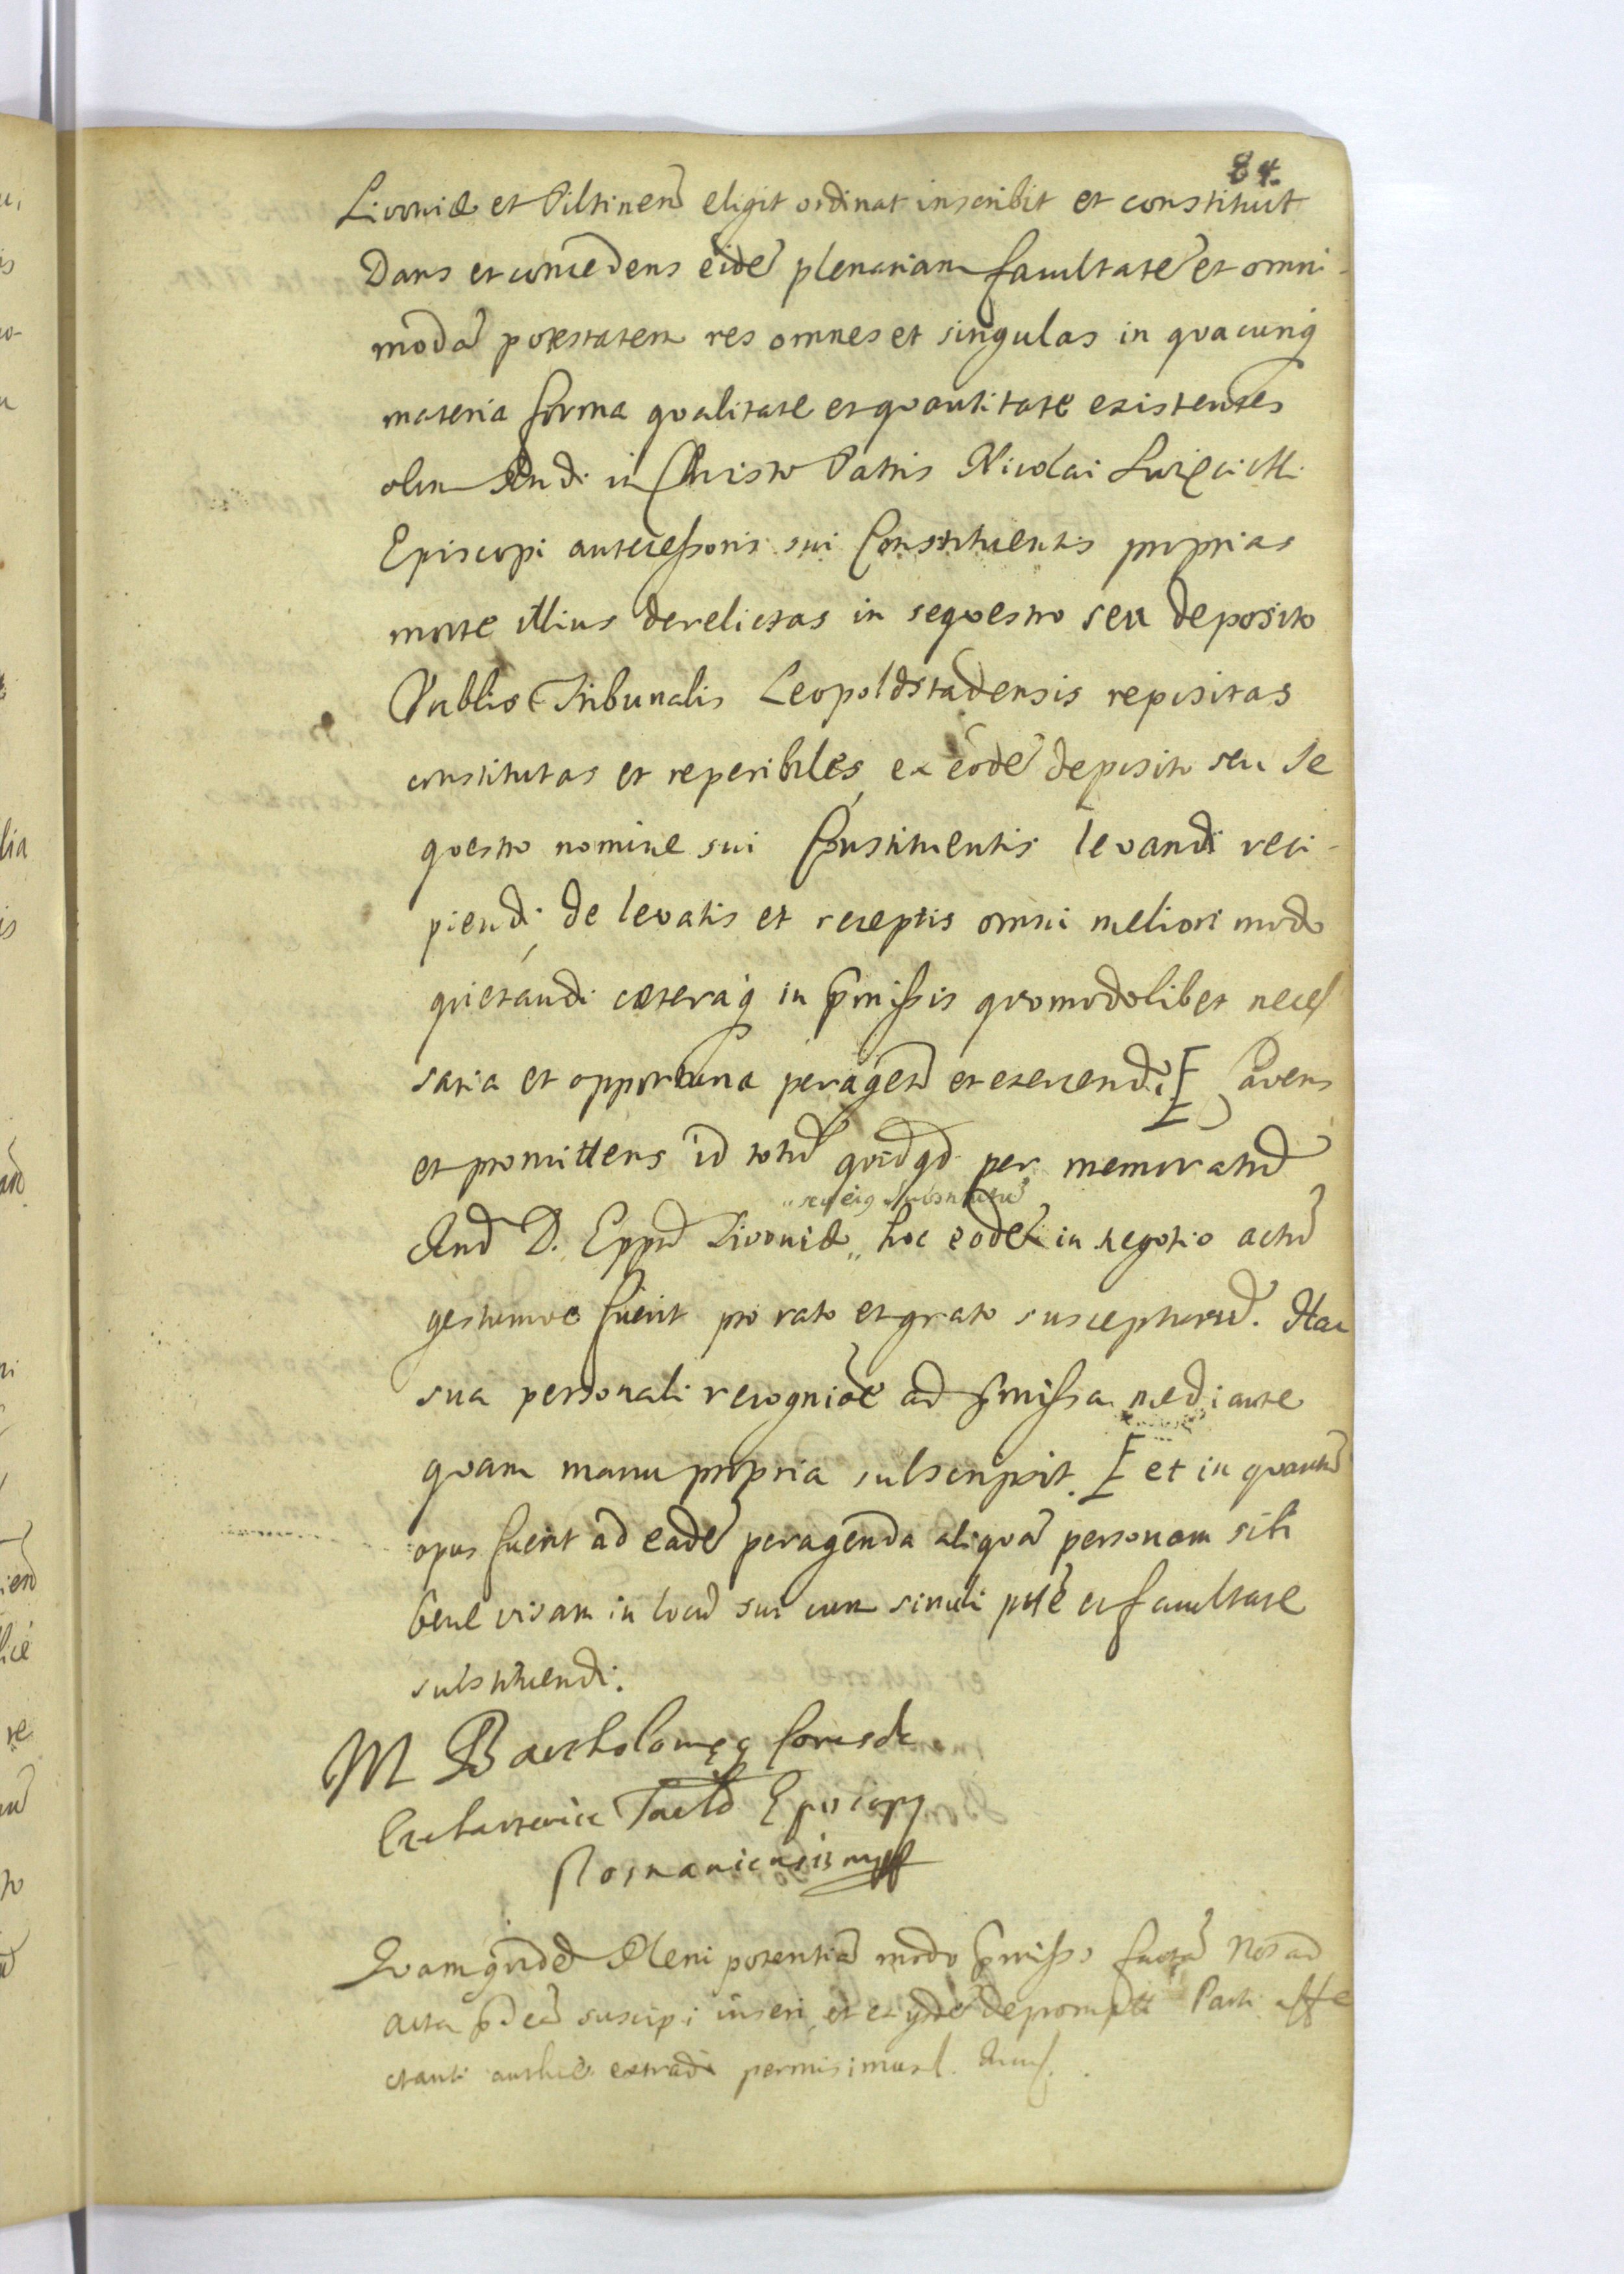 84.
Livoniæ et Piltineñ eligit ordinat inscribit et constituit
Dans et concedens eidẽ plenariam facultatẽ et omni-
modã potestatem res omnes et singulas in quacunq̃
materia forma qualitate et quantitate existentes
olim Rndi in Christo Patris Nicolai
Episcopi antecessoris sui Constituentis proprias
morte illius derelictas in sequestro seu deposito
Publico Tribunalis Leopoldstadensis repositas
constitutas et reperibiles, ex eodẽ deposito seu se
questro nomine sui Constituentis levandi reci-
piendi, de levatis et receptis omni meliori modo
quietandi cæteraq̃ in p̃missis quomodolibet neces
saria et opportuna peragend̃ et exercendi [ Cavens
et promittens id totũ quidqd per memoratũ
Rnd D. Eppũ Livoniæ „ hoc eodẽ in negotio actũ
„ seu eius substitutũ
gestumve fuerit pro rato et grato suscepturũ. Hac
sua personali recogniõẽ ad p̃missa mediante
quam manu propria subscripsit. [ et in quantũ
opus fuerit ad eadẽ peragenda aliquã personam sibi
bene visam in locũ sui cum simili ptẽ et facultate
substituendi.
M Bartholomeus
Episcopus
mpp
Quamquidẽ Plenipotentiã modo p̃misso factã Nos ad
acta p̃dcã suscipi inseri, et ex ijsdẽ depromptã Parti affe
ctanti authcẽ extradi permisimus.